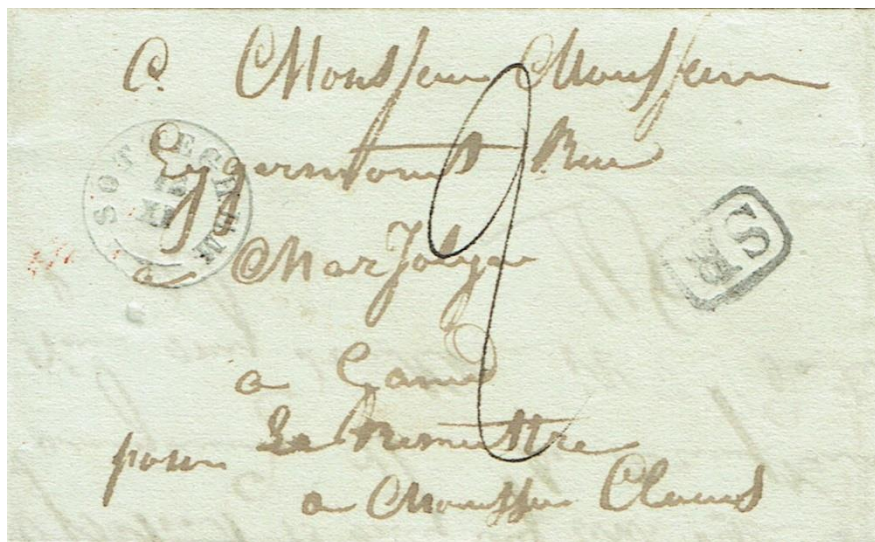 A Monsieur Monsieur
Eygermont Rue
a Mar Jolyn
a Gand
pour Le Remettre
a Monsieur Claus
SOTTEGHEM
SR
2